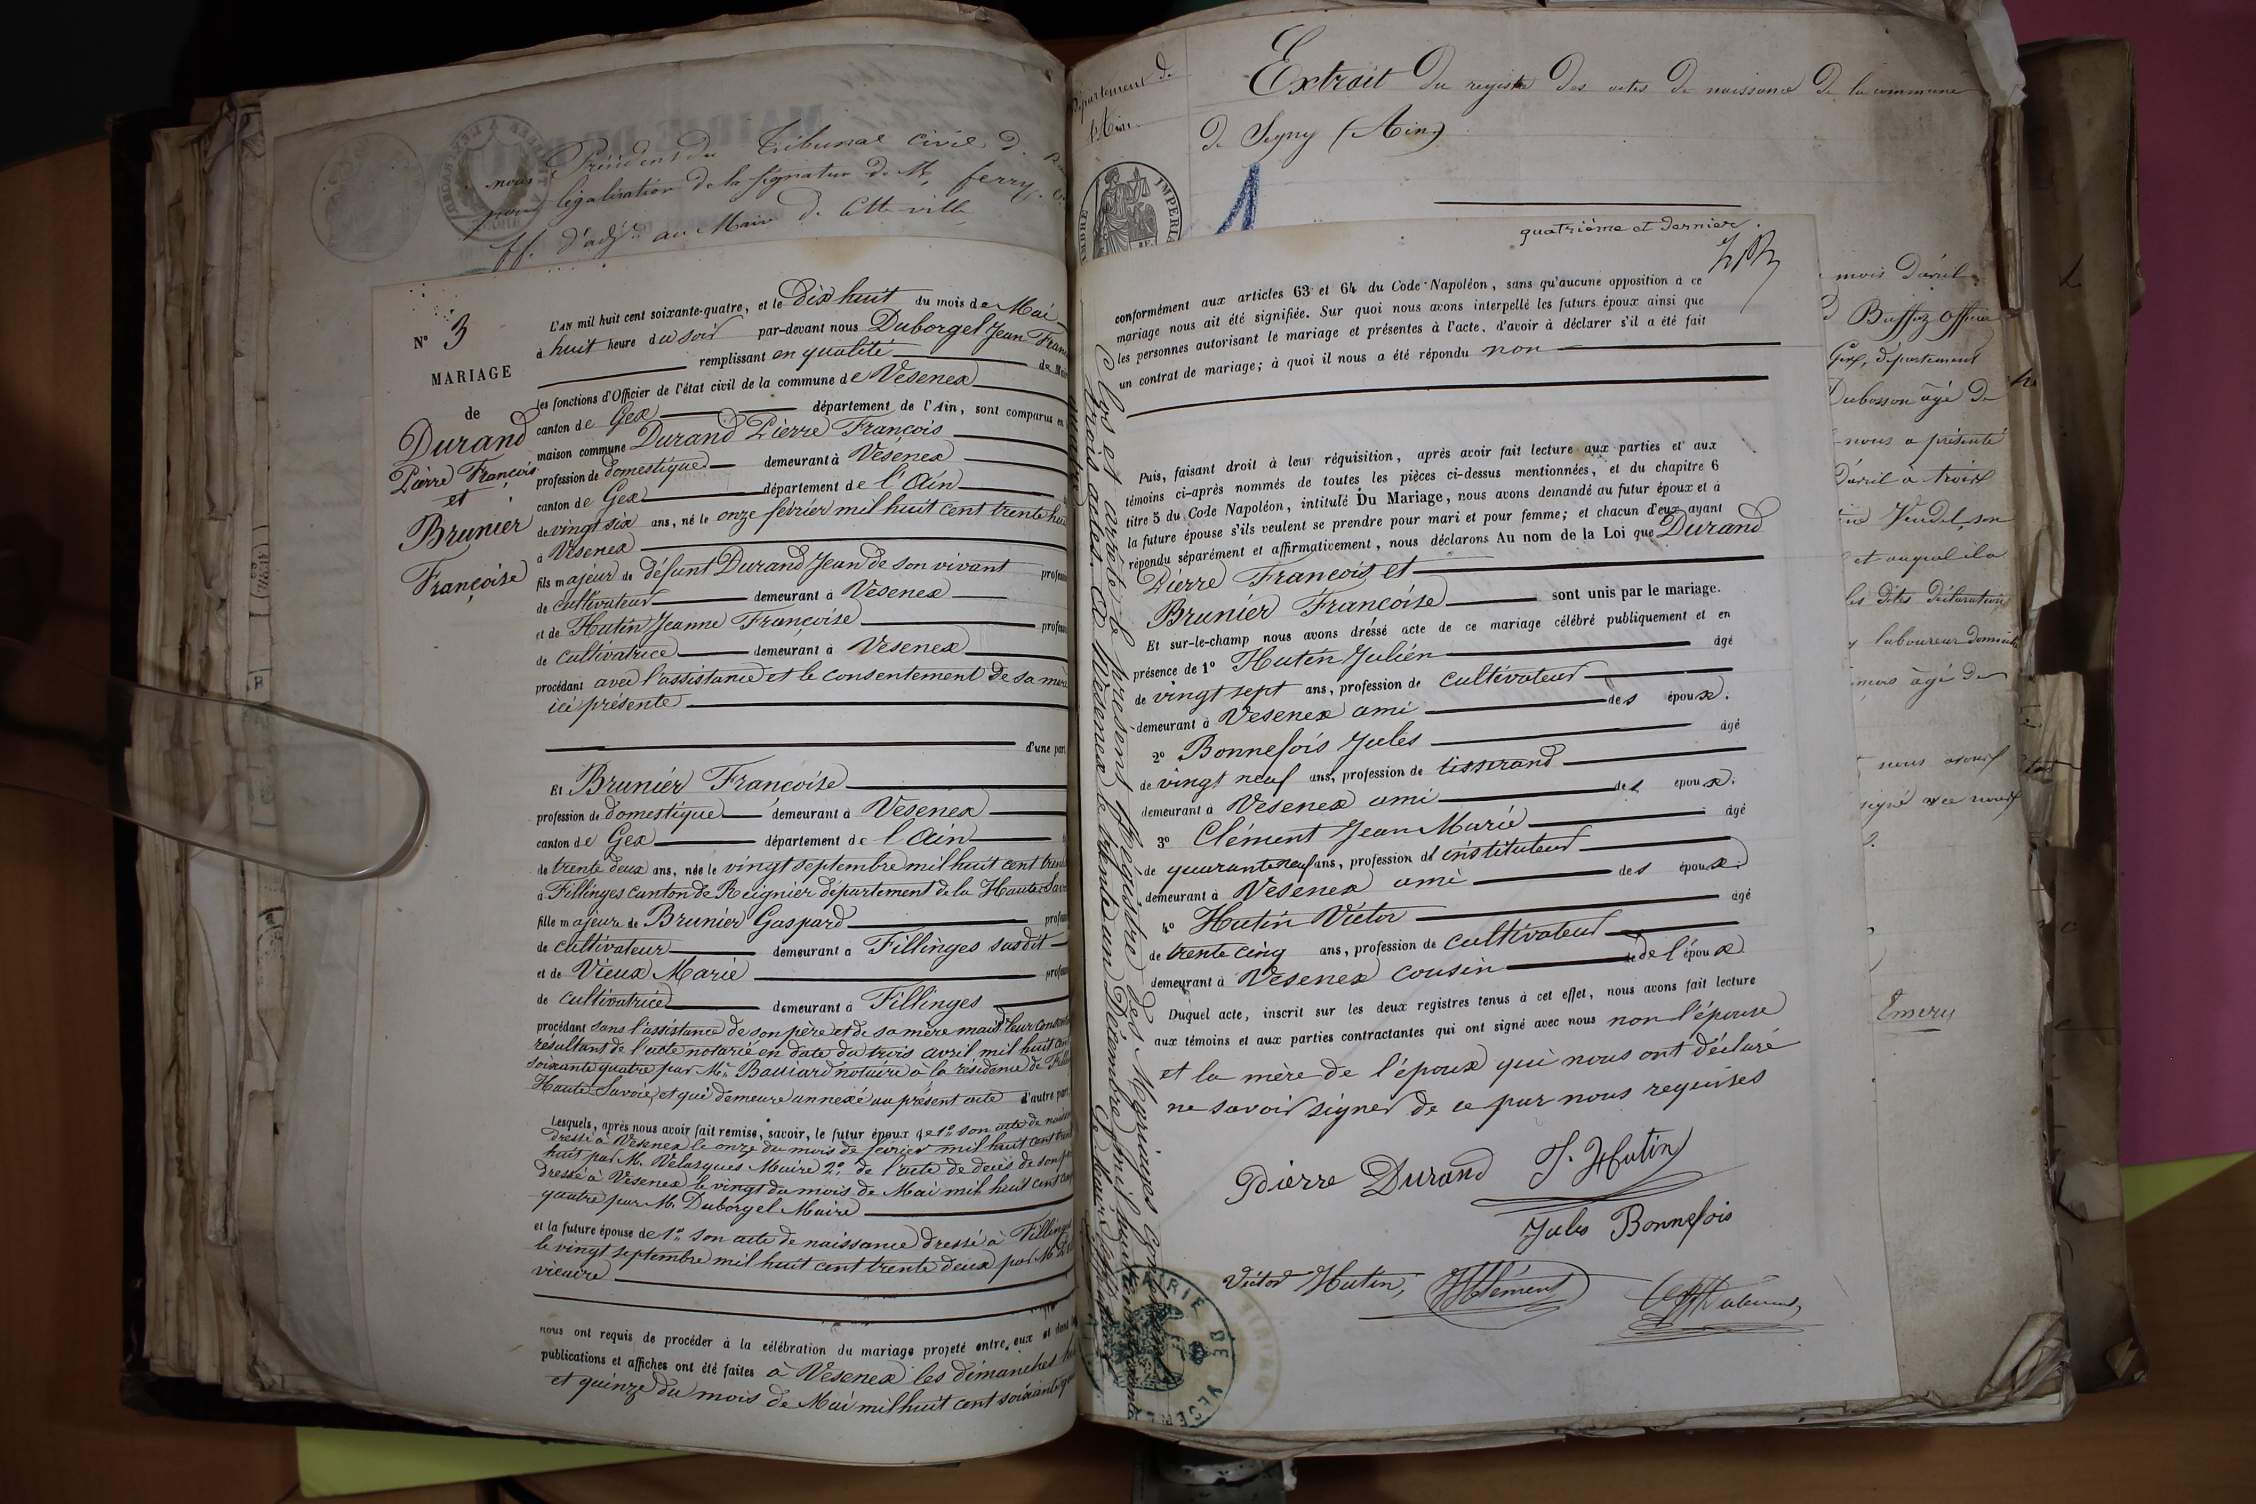 Président du Tribunal Civil d.
nous
pour légalisation de la signature de Mr. ferry.
ff. d'adjt au Maire de cette ville
N° 3
MARIAGE
de
Durand
Pierre François
et
Brunier
Françoise
L'AN mil huit cent soixante-quatre, et le dix huit du mois de Mai
à huit heure du soir par-devant nous Duborgel Jean
remplissant en qualité de
les fonctions d'Officier de l'état civil de la commune de Vesenex
canton de Gex département de l'Ain, sont comparus en
maison commune Durand Pierre François
profession de domestique demeurant à Vesenex
canton de Gex département de l'Ain
de vingt six ans, né le onze février mil huit cent trente huit
à Vesenex
fils majeur de défunt Durand Jean de son vivant
de cultivateur demeurant à Vesenex
et de Hutin Jeanne Françoise
de cultivatrice demeurant à Vesenex
procédant avec l'assistance et le consentement de sa mère
ici présente
d'une part
Et Brunier Françoise
profession de domestique demeurant à Vesenex
canton de Gex département de l'Ain
de trente deux ans, née le vingt septembre mil huit cent
à Fillinges canton de Reignier département de la Haute
fille majeure de Brunier Gaspard
de cultivateur demeurant à Fillinges susdit
et de Vieux Marie
de cultivatrice demeurant à Fillinges
procédant sans l'assistance de son père et de sa mère mais leur
résultant de l'acte notarié en date du trois avril mil huit cent
soixante quatre par Me. notaire à la résidence de
Haute Savoie, et qui demeure annexé au présent acte d'autre part
Lesquels, après nous avoir fait remise, savoir, le futur époux de 1° son acte de
dressé à Vesenex le onze du mois de février mil huit cent
huit par M. Velasques Maire 2° de l'acte de decès de son
dressé à Vesenex le vingt du mois de Mai mil huit cent
quatre par M. Duborgel Maire
et la future épouse de 1° son acte de naissance dressé à Fillinges
le vingt septembre mil huit cent trente deux par M
vicaire
nous ont requis de procéder à la célébration du mariage projeté entre eux et dont
publications et affiches ont été faites à Vesenex les dimanches
et quinze du mois de Mai mil huit cent soixante
Département de
l'Ain
Extrait du registre des actes de naissance de la commune
de Segny (Ain)
1
TIMBRE IMPERIAL
quatrième et dernier.
conformément aux articles 63 et 64 du Code Napoléon, sans qu'aucune opposition à ce
mariage nous ait été signifiée. Sur quoi nous avons interpellé les futurs époux ainsi que
les personnes autorisant le mariage et présentes à l'acte, d'avoir à déclarer s'il a été fait
un contrat de mariage; à quoi il nous a été répondu non
Puis, faisant droit à leur réquisition, après avoir fait lecture aux parties et aux
témoins ci-après nommés de toutes les pièces ci-dessus mentionnées, et du chapitre 6
titre 5 du Code Napoléon, intitulé Du Mariage, nous avons demandé au futur époux et à
la future épouse s'ils veulent se prendre pour mari et pour femme; et chacun d'eux ayant
répondu séparément et affirmativement, nous déclarons Au nom de la Loi que Durand
Pierre François et
Brunier Françoise sont unis par le mariage.
Et sur-le-champ nous avons dressé acte de ce mariage célébré publiquement et en
présence de 1° Hutin Julien âgé
de vingt sept ans, profession de cultivateur
demeurant à Vesenex ami des époux.
2° Bonnefois Jules âgé
de vingt neuf ans, profession de tisserand
demeurant à Vesenex ami des époux.
3° Clément Jean Marie âgé
de quarante neuf ans, profession d'instituteur
demeurant à Vesenex ami des époux.
4° Hutin Victor âgé
de trente cinq ans, profession de cultivateur
demeurant à Vesenex cousin de l'époux
Duquel acte, inscrit sur les deux registres tenus à cet effet, nous avons fait lecture
aux témoins et aux parties contractantes qui ont signé avec nous non l'épouse
et la mère de l'époux qui nous ont déclaré
ne savoir signer de ce par nous requises
Pierre Durand J. Hutin
Jules Bonnefois
Victor Hutin, Clément
Clos et arrêté le présent Registre des Mariages
trois actes. A Vesenex le trente un Décembre mil huit cent soixante
quatre
Le Maire
MAIRIE DE VESENEX
mois d'avril
Buffoz officier
Gex, département
Dubosson âgé de
nous a présenté
d'avril à trois
son
et auquel il a
les dites déclaration
laboureur
âgé de
nous avons
signé avec nous
Emery